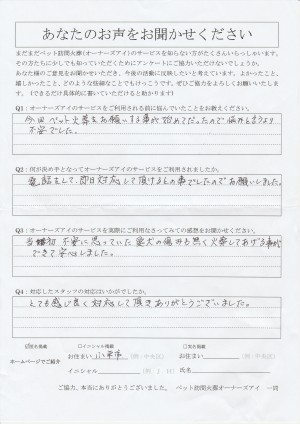 あなたのお声をお聞かせください
まだまだペット訪問火葬(オーナーズアイ)のサービスを知らない方がたくさんいらっしゃいます。
その方たちに少しでも知っていただくためにアンケートにご協力いただけないでしょうか。
あなた様のご意見をお聞かせいただき、今後の活動に反映したいと考えています。よかったこと、
嬉しかったこと、どのような些細なことでもけっこうです。ぜひご協力をよろしくお願いいたします。
(できるだけ具体的に書いていただけると助かります)
Q1:オーナーズアイのサービスをご利用される前に悩んでいたことをお教えください。
今回ペット火葬をお願いする事が始めてだったので悩みと言うより
不安でした。
Q2:何が決め手となってオーナーズアイのサービスをご利用されましたか。
電話をして即日対応して頂けるとの事でしたのでお願いしました。
Q3:オーナーズアイのサービスを実際にご利用なさってみての感想をお聞かせください。
当初不安に思っていた愛犬の傷みも無く火葬してあげる事が
できて安心しました。
Q4:対応したスタッフの対応はいかがでしたか。
とても感じ良く対応して頂きありがとうございました。
☑匿名掲載 □イニシャル掲載 □実名掲載
ホームページでご紹介
お住まい 八千代市 (例:中央区) お住まい (例:中央区)
イニシャル (例:J.H) 氏名
ご協力、本当にありがとうございました。 ペット訪問火葬オーナーズアイ 一同